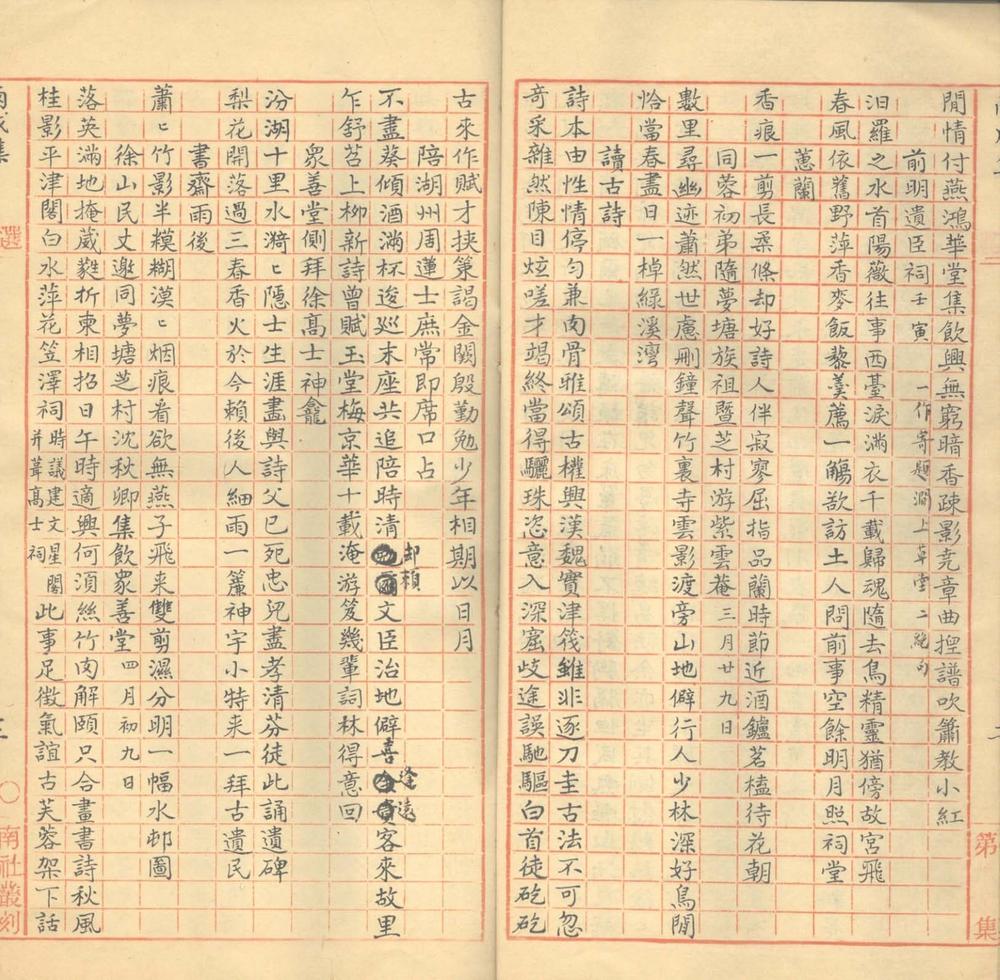 閒情付燕鴻華堂集飲興無窮暗香疎影堯章曲揑譜吹簫教小紅
前明遺臣祠壬寅 一作寄題澗上草堂二絕句
汨羅之水首陽薇往事西臺淚滿衣千載歸魂隨去鳥精靈猶傍故宮飛
春風依舊野萍香麥飯藜羹薦一觴欲訪土人問前事空餘明月照祠堂
蕙蘭
香痕一剪長柔條却好詩人伴寂寥屈指品蘭時節近酒鑪茗榼待花朝
同蓉初弟隨夢塘族祖暨芝村游紫雲菴三月廿九日
數里尋幽迹蕭然世慮刪鐘聲竹裏寺雲影渡旁山地僻行人少林深好鳥閒
恰當春盡日一棹綠溪灣
讀古詩
詩本由性情停勻兼肉骨雅頌古權興漢魏實津筏雖非逐刀圭古法不可忽
奇采雜然陳目炫嗟才竭終當得驪珠恣意入深窟岐途誤馳驅白首徒矻矻
第 集
古來作賦才挾策謁金闕殷勤勉少年相期以日月
陪湖州周蓮士庶常即席口占
不盡葵傾酒滿杯逡巡末座共追陪時清却賴文臣治地僻喜逢遠客來故里
乍舒苕上柳新詩曾賦玉堂梅京華十載淹游笈幾輩詞林得意回
眾善堂側拜徐高士神龕
汾湖十里水漪〻隱士生涯畫與詩父已死忠兒盡孝清芬徒此誦遺碑
梨花開落過三春香火於今賴後人細雨一簾神宇小特来一拜古遺民
書齋雨後
蕭〻竹影半糢糊漠〻烟痕看欲無燕子飛来雙剪濕分明一幅水邨圖
徐山民丈邀同夢塘芝村沈秋卿集飲眾善堂四月初九日
落英滿地掩葳蕤折柬相招日午時適興何須絲竹肉解頤只合畫書詩秋風
桂影平津閣白水萍花笠澤祠時議建文星閣并葺高士祠此事足徵氣誼古芙蓉架下話
選
南社叢刻